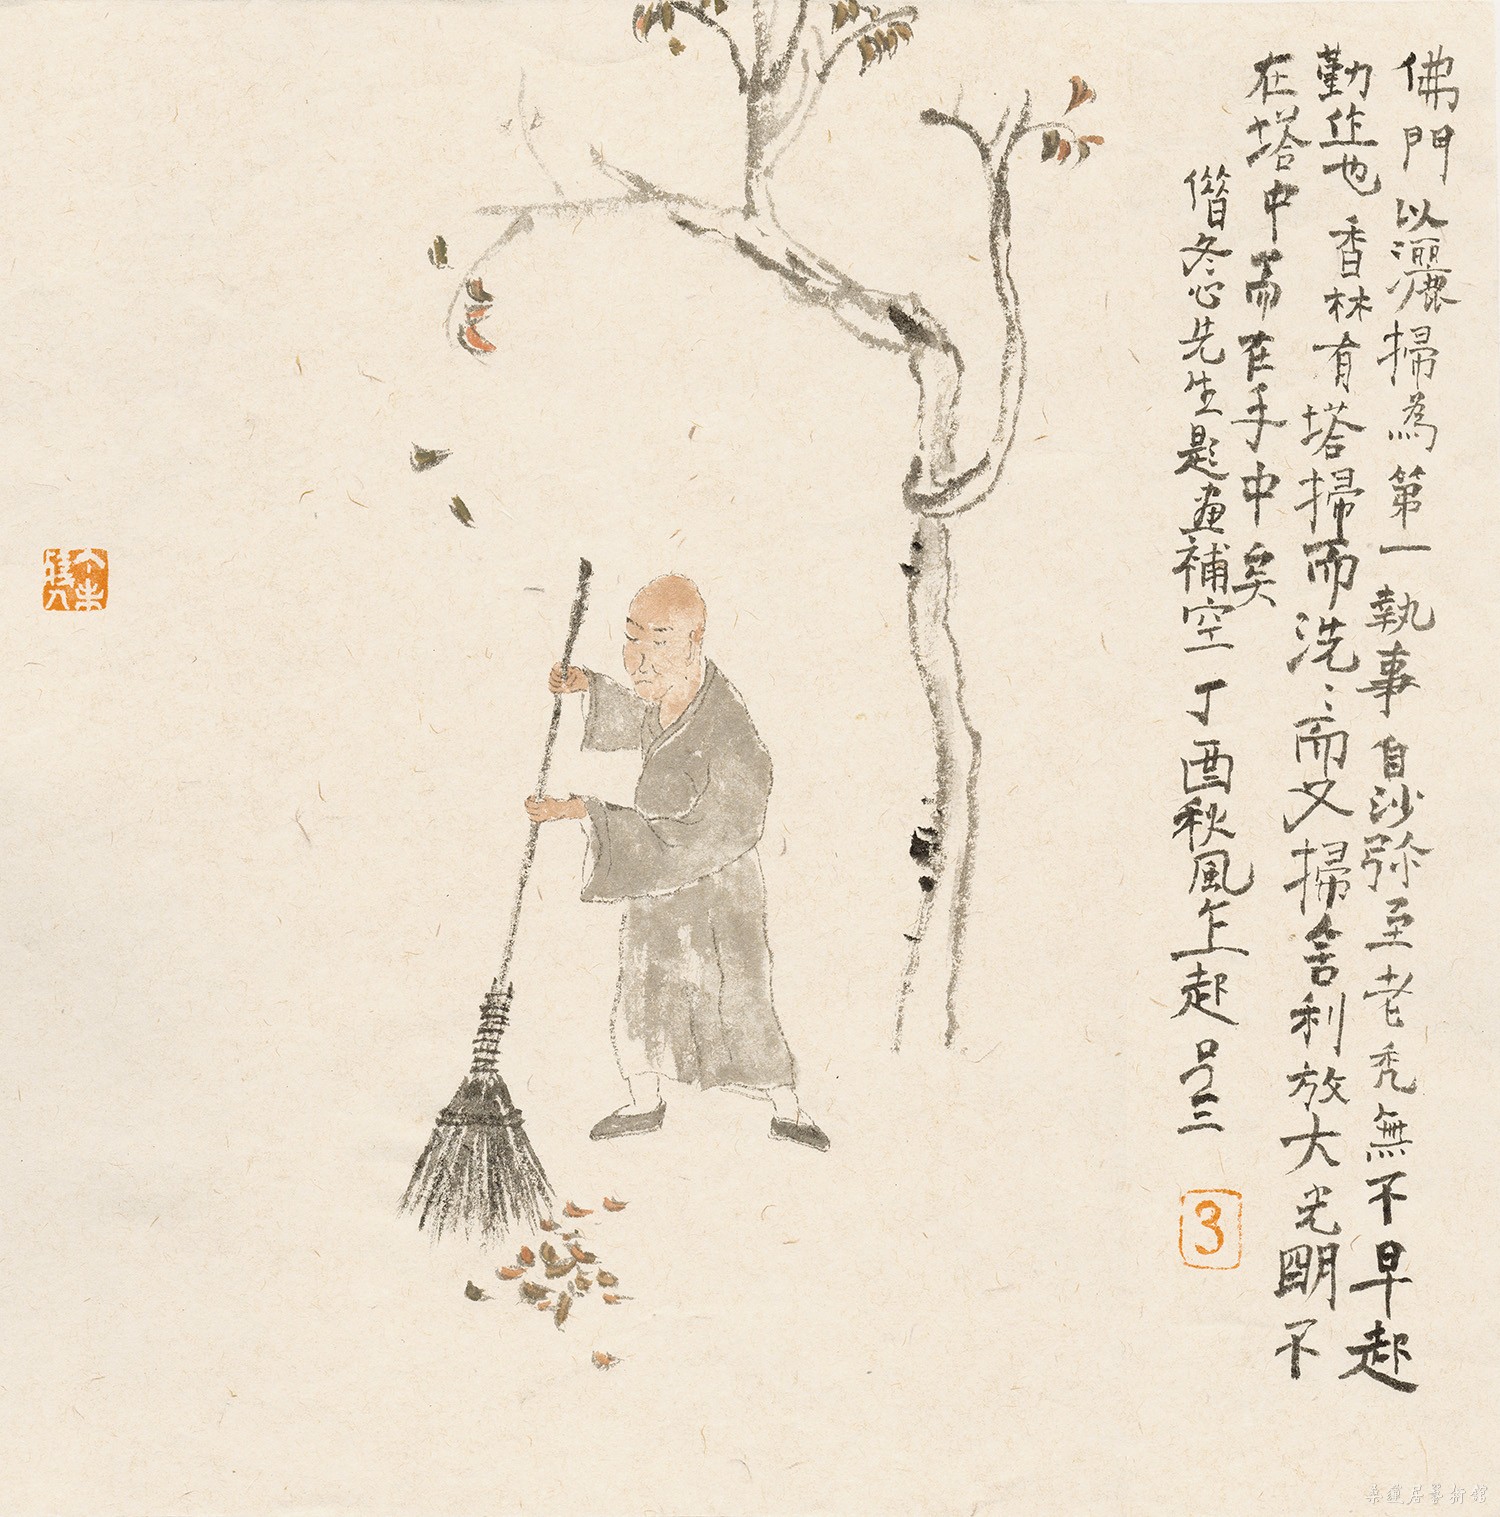 佛門以灑掃為第一執事自沙弥至老秃無不早起
勤作也香林有塔掃而洗〻而又掃舍利放大光朙不
在塔中而在手中矣
借冬心先生題畫補空丁酉秋風乍起号三
3
居藝術館